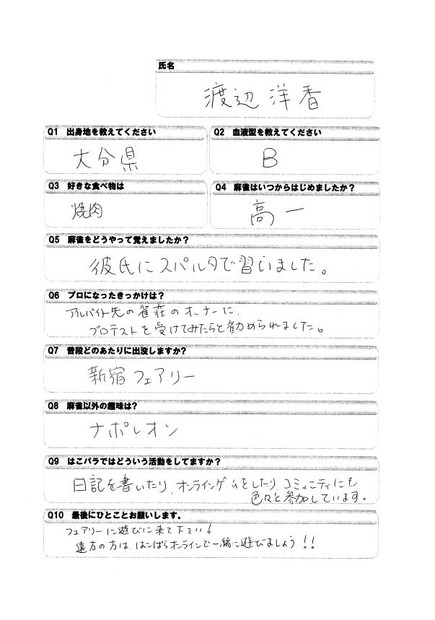 氏名
渡辺 洋香
Q1 出身地を教えてください
大分県
Q2 血液型を教えてください
B
Q3 好きな食べ物は
焼肉
Q4 麻雀はいつからはじめましたか?
高一
Q5 麻雀をどうやって覚えましたか?
彼氏にスパルタで習いました。
Q6 プロになったきっかけは?
アルバイト先の雀荘のオーナーに、
プロテストを受けてみたらと勧められました。
Q7 普段どのあたりに出没しますか?
新宿フェアリー
Q8 麻雀以外の趣味は?
ナポレオン
Q9 はこパラではどういう活動をしてますか?
日記を書いたり、オンラインゲームをしたり、コミュニティにも
色々と参加しています。
Q10 最後にひとことお願いします。
フェアリーに遊びに来て下さい!
遠方の方は、はこぱらオンラインで一緒に遊びましょう!!